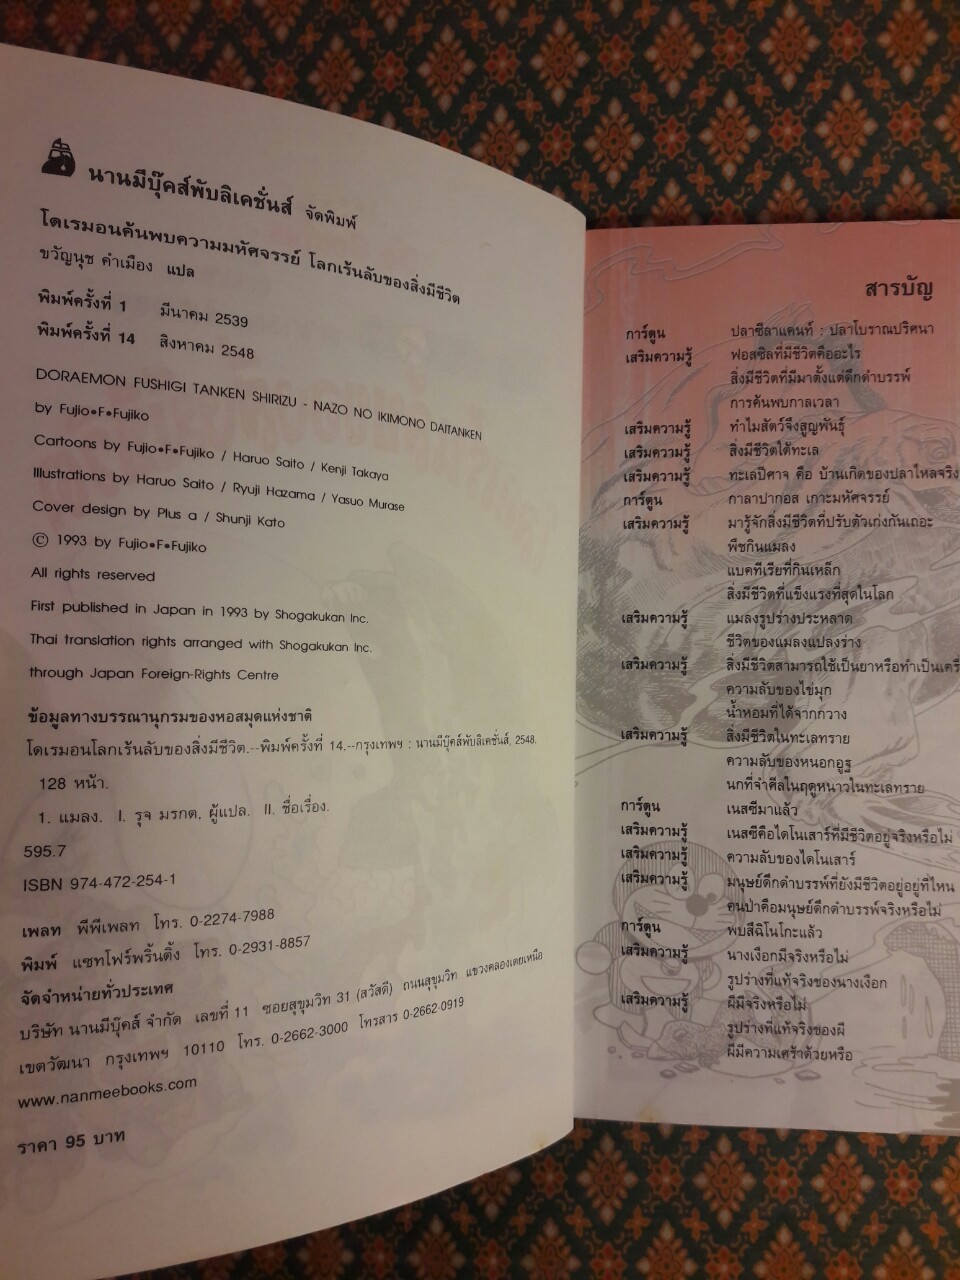 นานมีบุ๊คส์พับลิเคชั่นส์ จัดพิมพ์
โดเรมอนค้นพบความมหัศจรรย์ โลกเร้นลับของสิ่งมีชีวิต
ขวัญนุช คำเมือง แปล
พิมพ์ครั้งที่ 1 มีนาคม 2539
พิมพ์ครั้งที่ 14 สิงหาคม 2548
DORAEMON FUSHIGI TANKEN SHIRIZU - NAZO NO IKIMONO DAITANKEN
by Fujio•F•Fujiko
Cartoons by Fujio•F•Fujiko / Haruo Saito / Kenji Takaya
Illustrations by Haruo Saito / Ryuji Hazama / Yasuo Murase
Cover design by Plus a / Shunji Kato
© 1993 by Fujio•F•Fujiko
All rights reserved
First published in Japan in 1993 by Shogakukan Inc.
Thai translation rights arranged with Shogakukan Inc.
through Japan Foreign-Rights Centre
ข้อมูลทางบรรณานุกรมของหอสมุดแห่งชาติ
โดเรมอนโลกเร้นลับของสิ่งมีชีวิต.--พิมพ์ครั้งที่ 14.--กรุงเทพฯ : นานมีบุ๊คส์พับลิเคชั่นส์, 2548.
128 หน้า.
1. แมลง. I. รุจ มรกต, ผู้แปล. II. ชื่อเรื่อง.
595.7
ISBN 974-472-254-1
เพลท พีพีเพลท โทร. 0-2274-7988
พิมพ์ แซทโฟร์พริ้นติ้ง โทร. 0-2931-8857
จัดจำหน่ายทั่วประเทศ
บริษัท นานมีบุ๊คส์ จำกัด เลขที่ 11 ซอยสุขุมวิท 31 (สวัสดี) ถนนสุขุมวิท แขวงคลองเตยเหนือ
เขตวัฒนา กรุงเทพฯ 10110 โทร. 0-2662-3000 โทรสาร 0-2662-0919
www.nanmeebooks.com
ราคา 95 บาท
สารบัญ
การ์ตูน ปลาซีลาแคนท์ : ปลาโบราณปริศนา
เสริมความรู้ ฟอสซิลที่มีชีวิตคืออะไร
สิ่งมีชีวิตที่มีมาตั้งแต่ดึกดำบรรพ์
การค้นพบกาลเวลา
เสริมความรู้ ทำไมสัตว์จึงสูญพันธุ์
เสริมความรู้ สิ่งมีชีวิตใต้ทะเล
เสริมความรู้ ทะเลปีศาจ คือ บ้านเกิดของปลาไหลจริง
การ์ตูน กาลาปากอส เกาะมหัศจรรย์
เสริมความรู้ มารู้จักสิ่งมีชีวิตที่ปรับตัวเก่งกันเถอะ
พืชกินแมลง
แบคทีเรียที่กินเหล็ก
สิ่งมีชีวิตที่แข็งแรงที่สุดในโลก
เสริมความรู้ แมลงรูปร่างประหลาด
ชีวิตของแมลงแปลงร่าง
เสริมความรู้ สิ่งมีชีวิตสามารถใช้เป็นยาหรือทำเป็นเครื่
ความลับของไข่มุก
น้ำหอมที่ได้จากกวาง
เสริมความรู้ สิ่งมีชีวิตในทะเลทราย
ความลับของหนอกอูฐ
นกที่จำศีลในฤดูหนาวในทะเลทราย
การ์ตูน เนสซีมาแล้ว
เสริมความรู้ เนสซีคือไดโนเสาร์ที่มีชีวิตอยู่จริงหรือไม่
เสริมความรู้ ความลับของไดโนเสาร์
เสริมความรู้ มนุษย์ดึกดำบรรพ์ที่ยังมีชีวิตอยู่อยู่ที่ไหน
คนป่าคือมนุษย์ดึกดำบรรพ์จริงหรือไม่
การ์ตูน พบสึฉิโนโกะแล้ว
เสริมความรู้ นางเงือกมีจริงหรือไม่
รูปร่างที่แท้จริงของนางเงือก
เสริมความรู้ ผีมีจริงหรือไม่
รูปร่างที่แท้จริงของผี
ผีมีความเศร้าด้วยหรือ